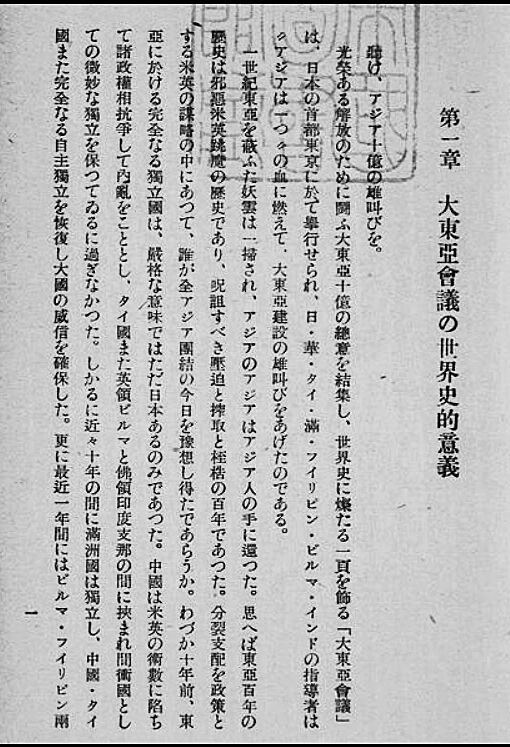 第一章　大東亞會議の世界史的意義
聽け、アジア十億の雄叫びを。
光榮ある解放のために鬪ふ大東亞十億の總意を結集し、世界史に燦たる一頁を飾る「大東亞會議」
は、日本の首都東京に於て擧行せられ、日・華・タイ・滿・フイリピン・ビルマ・インドの指導者は
〝アジアは一つ〟の血に燃えて、大東亞建設の雄叫びをあげたのである。
一世紀東亞を蔽ふた妖雲は一掃され、アジアのアジアはアジア人の手に還つた。思へば東亞百年の
歷史は邪惡米英跳魔の歷史であり、呪詛すべき壓迫と搾取と桎梏の百年であつた。分裂支配を政策と
する米英の謀略の中にあつて、誰が全アジア團結の今日を豫想し得たであらうか。わづか十年前、東
亞に於ける完全なる獨立國は、嚴格な意味ではただ日本あるのみであつた。中國は米英の術數に陷ち
て諸政權相抗爭して內亂をこととし、タイ國また英領ビルマと佛領印度支那の間に挾まれ間衝國とし
ての微妙な獨立を保つてゐるに過ぎなかつた。しかるに近々十年の間に滿洲國は獨立し、中國・タイ
國また完全なる自主獨立を恢復し大國の威信を確保した。更に最近一年間にはビルマ・フイリピン兩
一